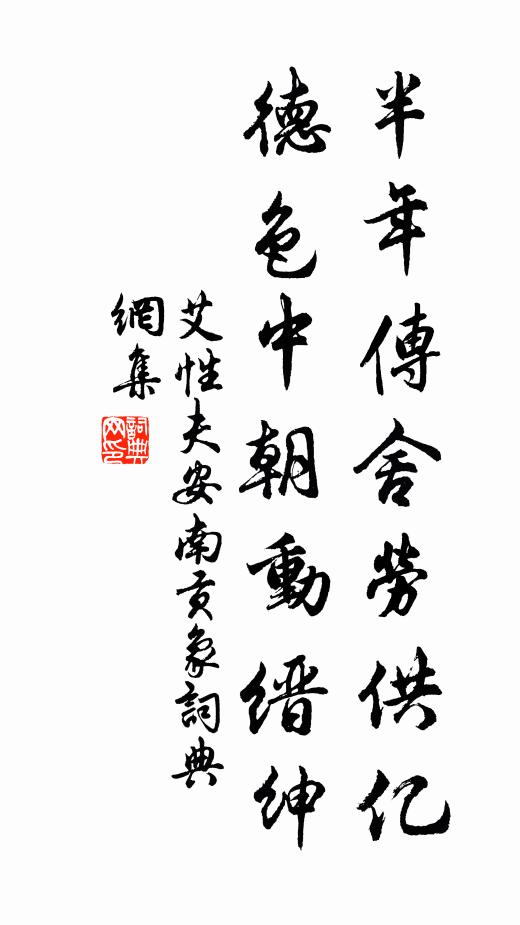 半年傳舍勞供亿
德色中朝動缙紳
艾性夫安南貢象詞典
網集
詞典
网印